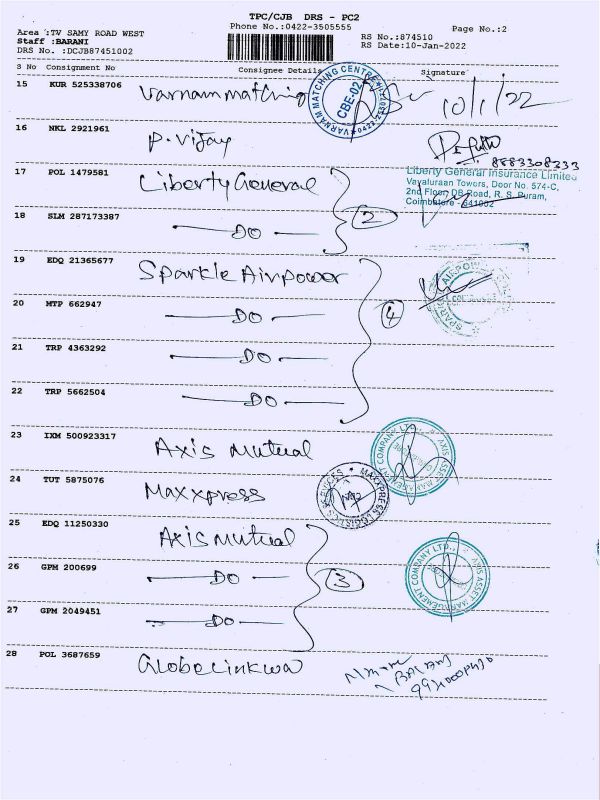 TPC/CJB DRS - PC2
Phone No.:0422-3505555
Page No.:2
Area :TV SAMY ROAD WEST
Staff :BARANI
DRS No. :DCJB87451002
RS No.:874510
RS Date:10-Jan-2022
S No Consignment No Consignee Details Signature
15 KUR 525338706 Varnammatching 10/1/22
VARNAM MATCHING CENTRE
CBE-02
16 NKL 2921961 P. Vijay
8883308233
17 POL 1479581 Liberty General
Liberty General Insurance Limited
Vayaluraan Towers, Door No. 574-C,
2nd Floor, DB Road, R. S. Puram,
Coimbatore - 641002
18 SLM 287173387 DO 2
19 EDQ 21365677 Sparkle Airpower
20 MTP 662947 DO 4
21 TRP 4363292 DO
22 TRP 5662504 DO
23 IXM 500923317 Axis Mutual
AXIS ASSET MANAGEMENT COMPANY LTD.,
24 TUT 5875076 Maxxpress
MAXXPRESS LOGISTICS SERVICES
25 EDQ 11250330 Axis Mutual
26 GPM 200699 DO 3
AXIS ASSET MANAGEMENT COMPANY LTD.,
27 GPM 2049451 DO
28 POL 3687659 Globelinkww